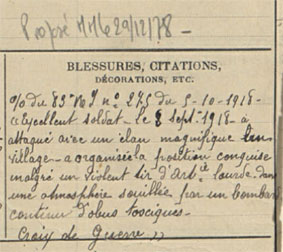 Proposé MM 6 29/12/78 -
BLESSURES, CITATIONS,
DÉCORATIONS, ETC.
O/ du 83e R I no 275 du 5-10-1918-
« Excellent soldat - le 8 septe 1918 - a
attaqué avec un élan magnifique un
village - a organisé la position conquise
malgré un violent tir d'Artie lourde dans
une atmosphère souillée par un bombart
continu d'obus toxiques -
Croix de Guerre »